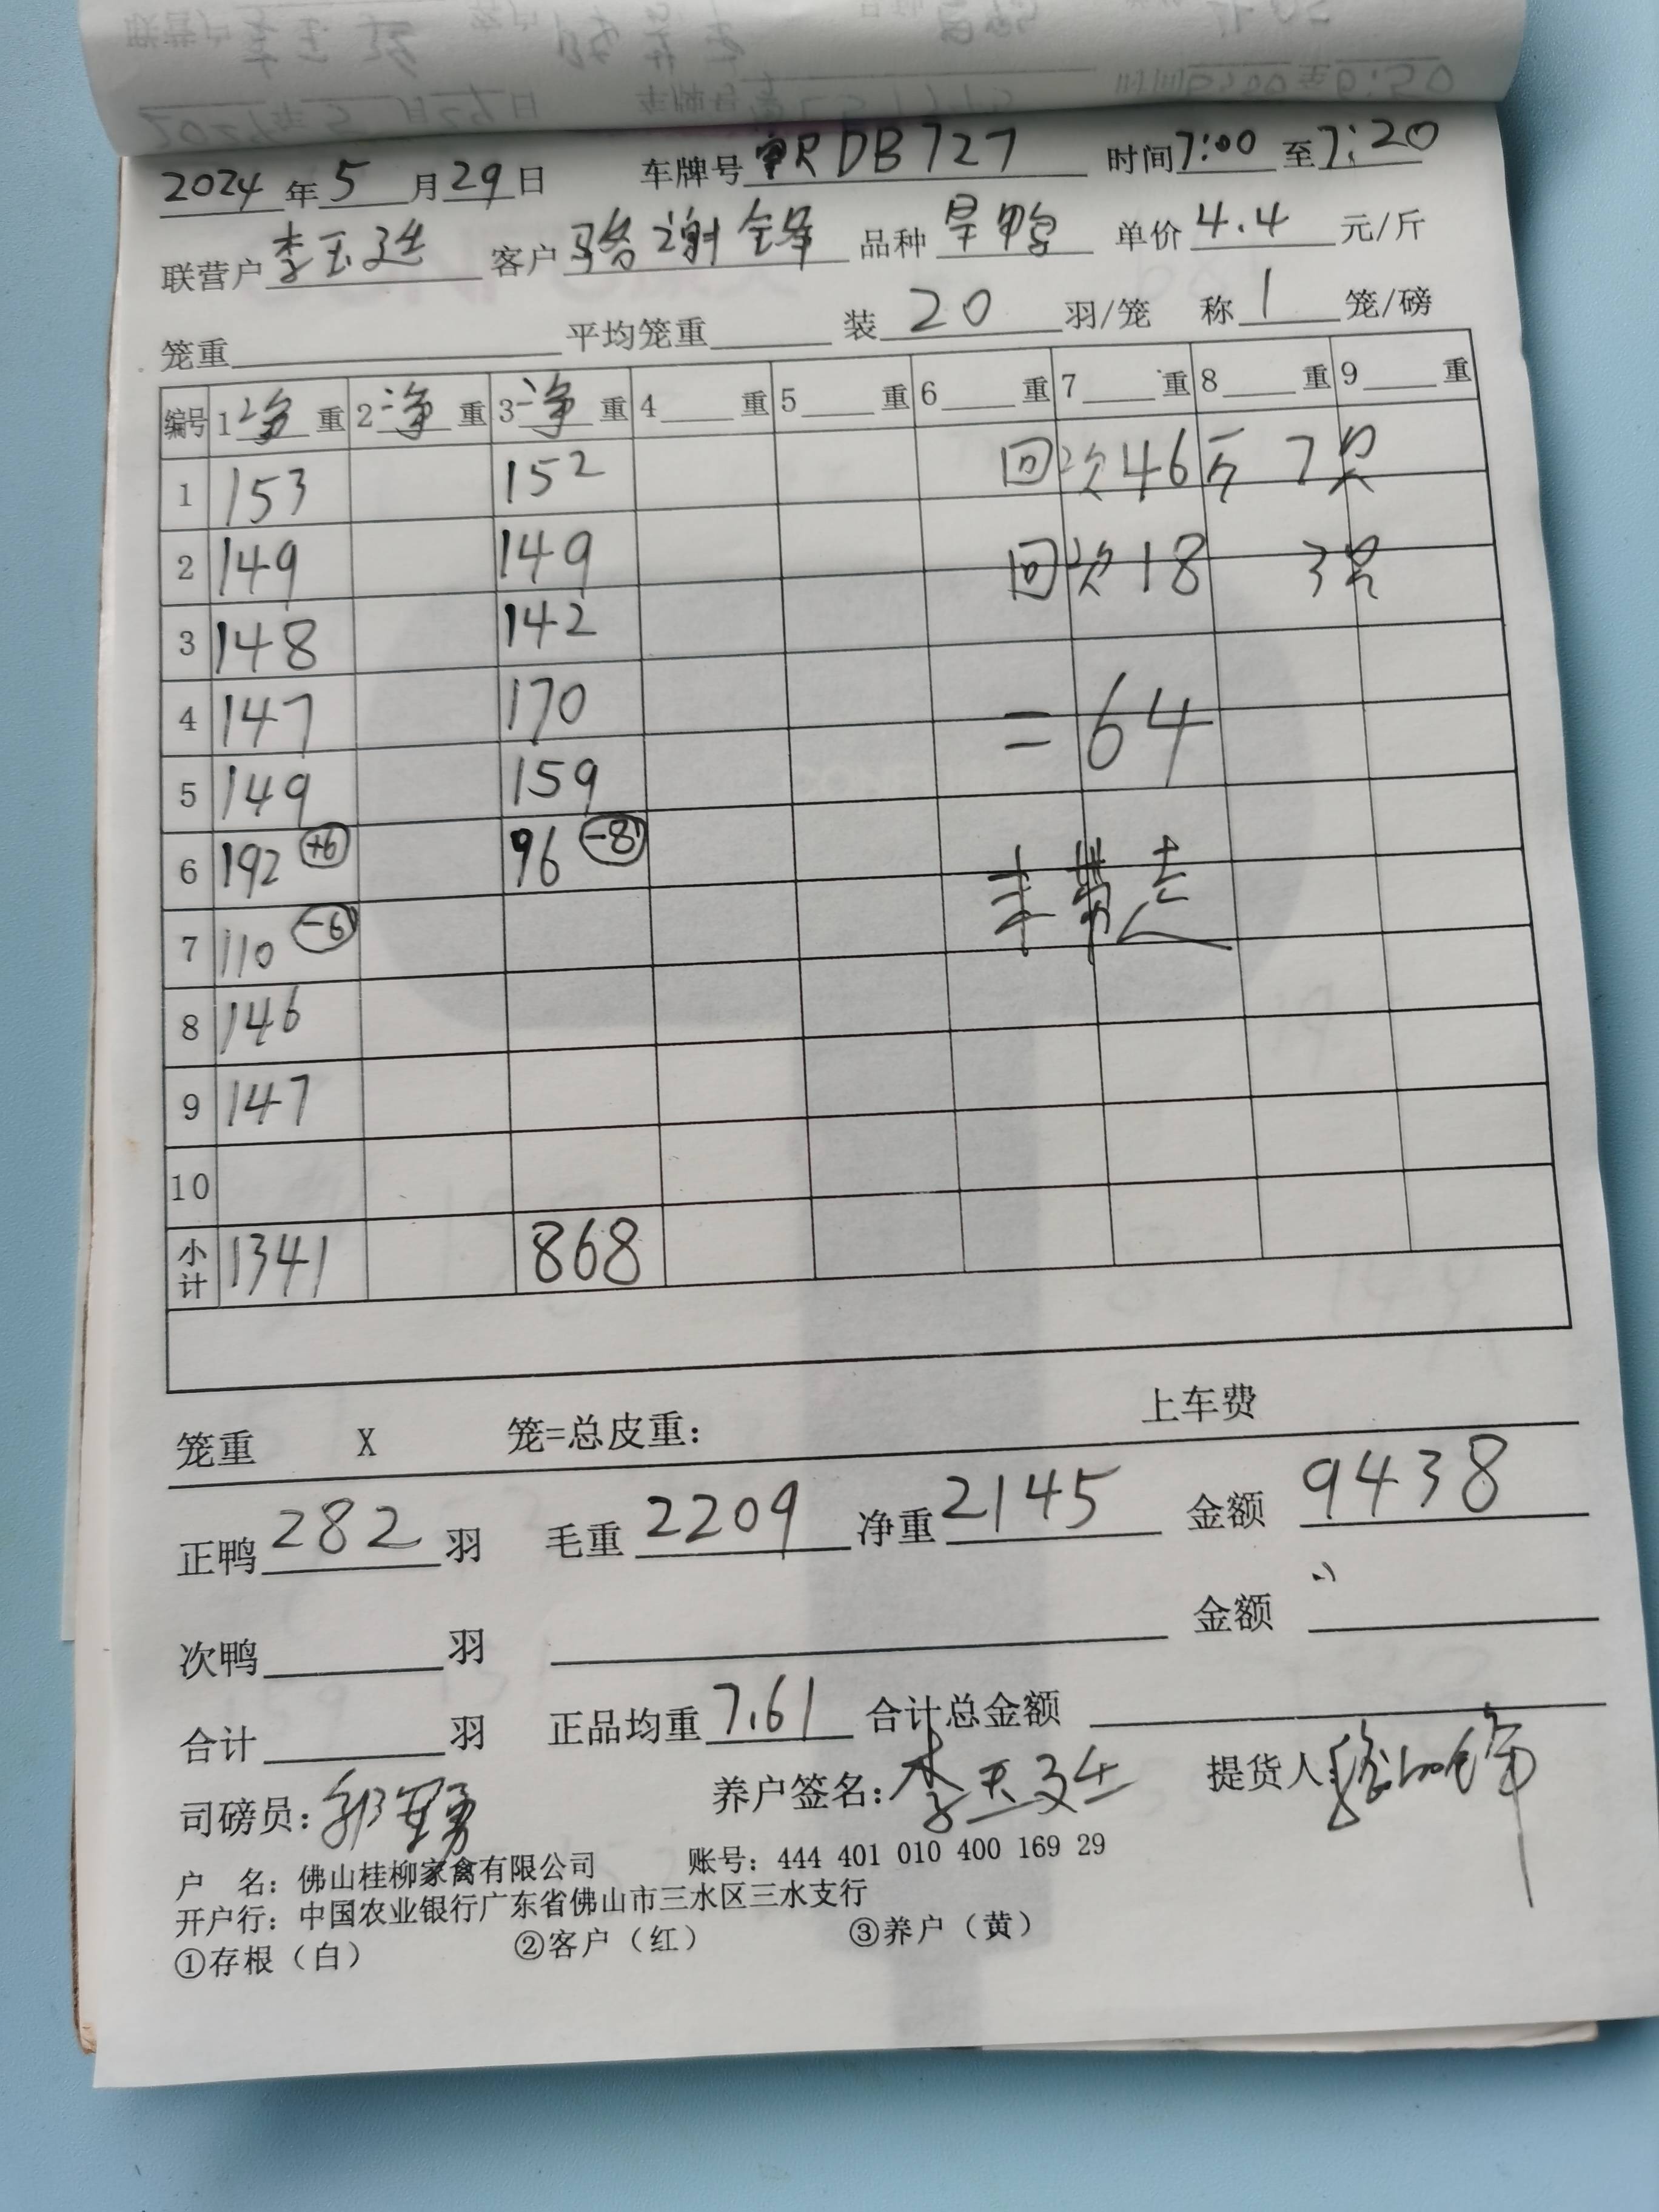 2024年5月29日 车牌号 粤RDB727 时间7:00至7:20
联营户 李玉 客户 骆谢锋 品种 旱鸭 单价4.4元/斤
笼重 平均笼重 装20羽/笼 称1笼/磅
编号 1净重 2净重 3净重 4重 5重 6重 7重 8重 9重
1 153 152 回次46斤 7只
2 149 149 回次18 3只
3 148 142
4 147 170 =64
5 149 159
6 192 +6 96 -8 未带走
7 110 -6
8 146
9 147
10
小计 1341 868
笼重 X 笼=总皮重: 上车费
正鸭282羽 毛重2209 净重2145 金额9438
次鸭 羽 金额
合计 羽 正品均重7.61 合计总金额
司磅员: 养户签名: 李玉 提货人:
户 名:佛山桂柳家禽有限公司 账号:444 401 010 400 169 29
开户行:中国农业银行广东省佛山市三水区三水支行
①存根(白) ②客户(红) ③养户(黄)